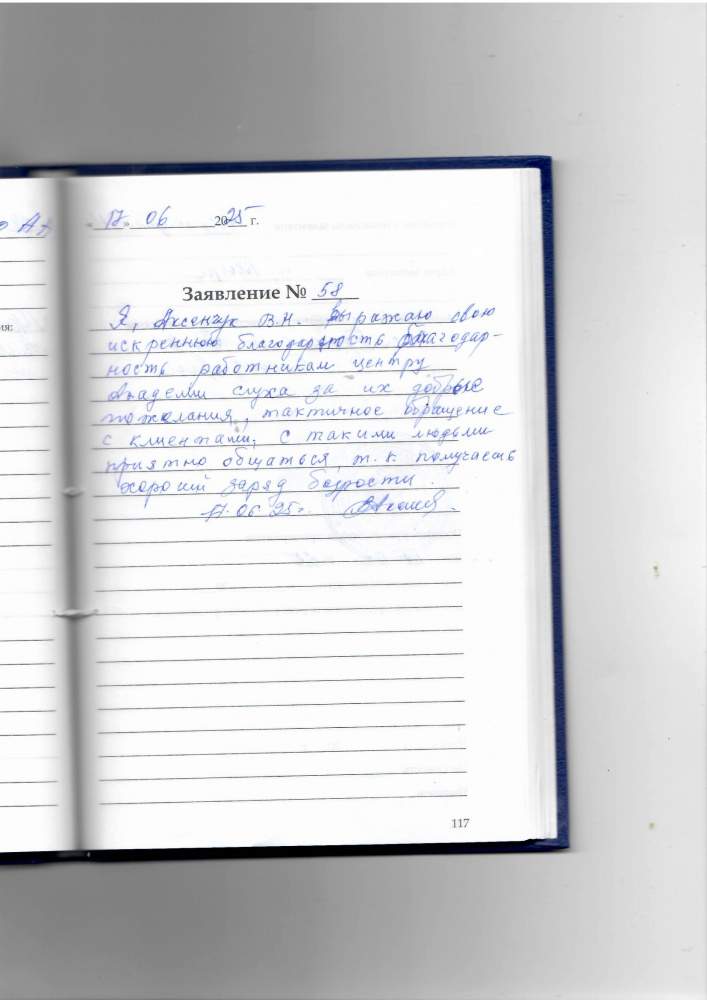 о А А
ия:
« 17 » 06 2025 г.
Заявление № 58
Я, Аксенчук В.Н. выражаю свою
искреннюю благодарность благодар-
ность работникам центру
Академи слуха за их добрые
пожелания, тактичное обращение
с клиентами, с такими людьми
приятно общаться, т.к. получаешь
хороший заряд бодрости.
17.06.25г.
117